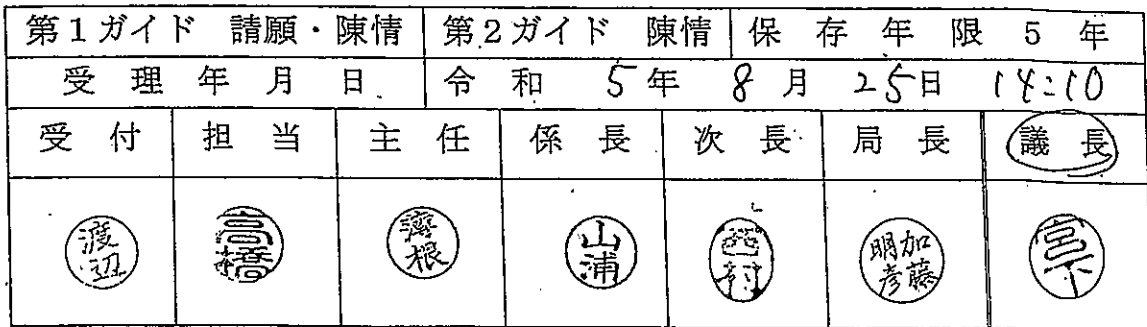 第1ガイド 請願・陳情 第2ガイド 陳情 保存年限 5年
受理年月日 令和 5年 8月 25日 14:10
受付 担当 主任 係長 次長 局長 議長
渡辺 高橋 濱根 山浦 西村 加藤明彦 宮下